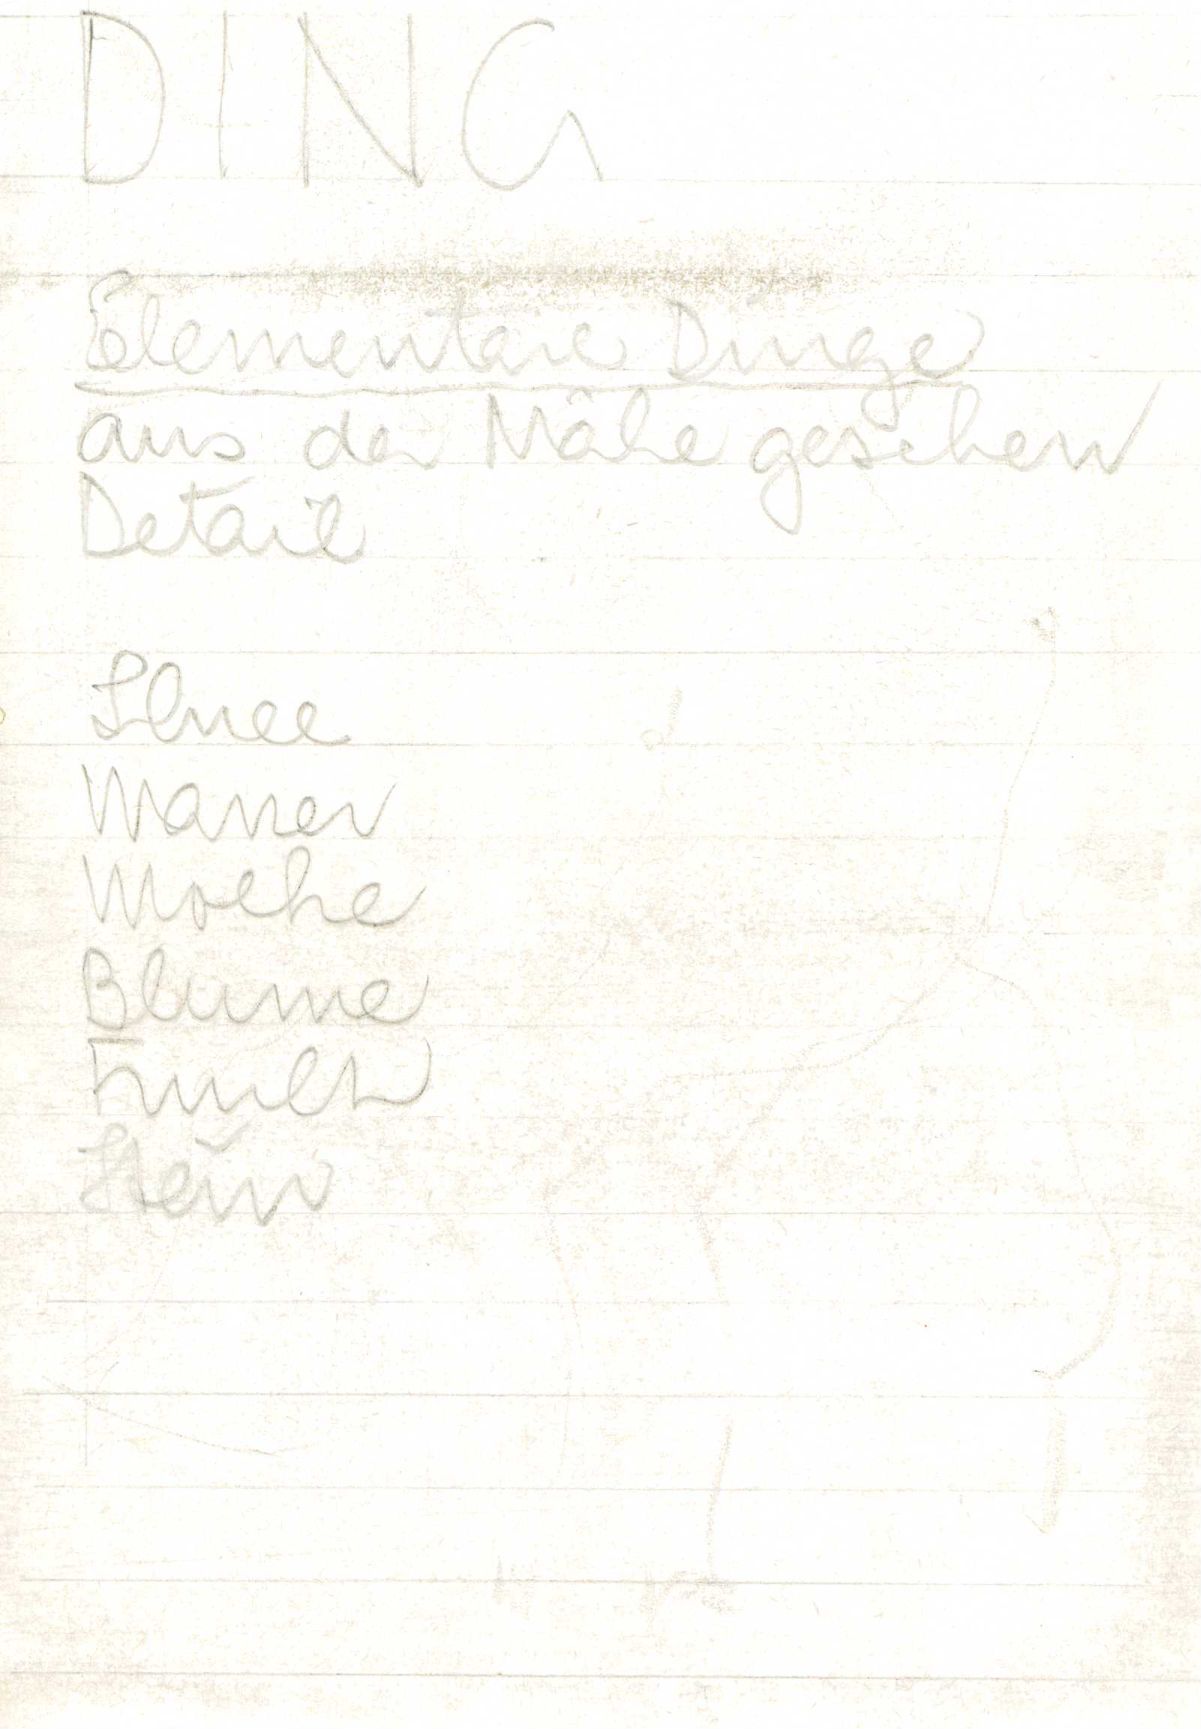 DING
Elementare Dinge
aus der Nähe gesehen
Detail
Schnee
Wasser
Woche
Blume
Stein